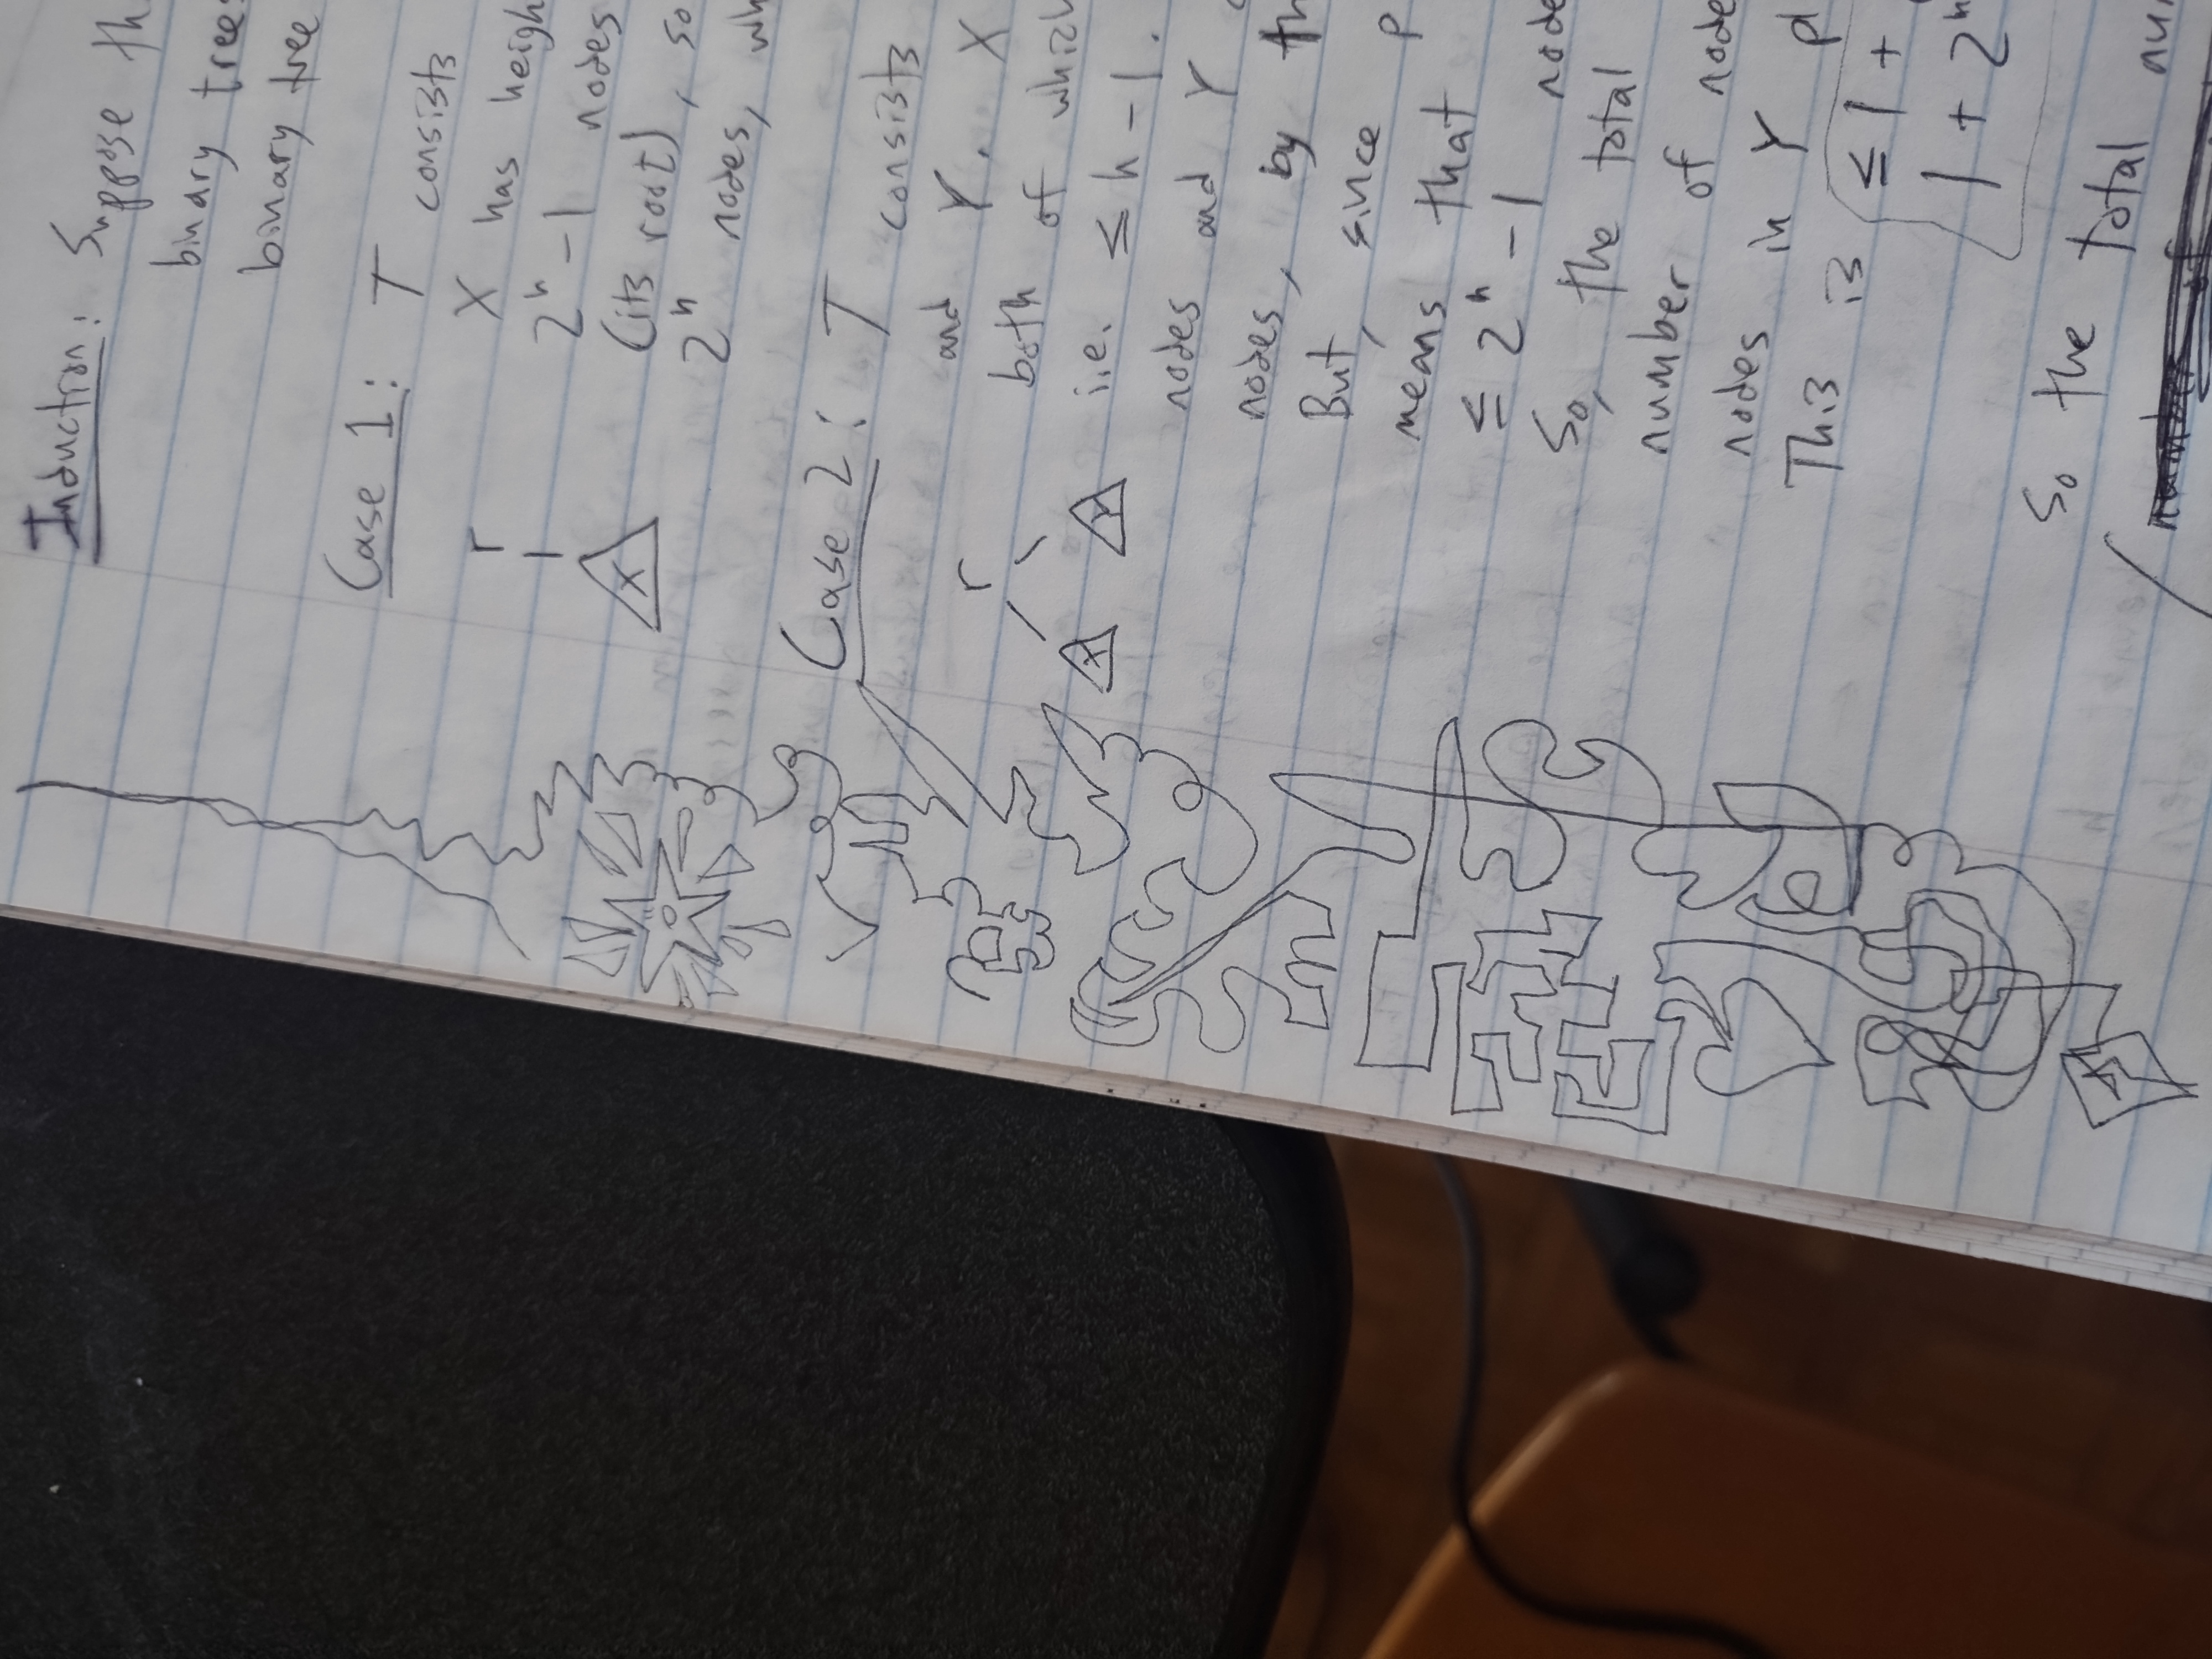 Induction: Suppose th
binary trees
binary tree
Case 1: T consists
r
X has heigh
2^h - 1 nodes
X
(its root), so
2^h nodes, wh
Case 2: T consists
and Y. X
r
both of which
X Y
i.e. ≤ h - 1.
nodes and Y
nodes, by th
But, since p
means that
≤ 2^h - 1 node
So, the total
number of node
nodes in Y pl
This is ≤ 1 +
1 + 2^h
So the total nu
number of